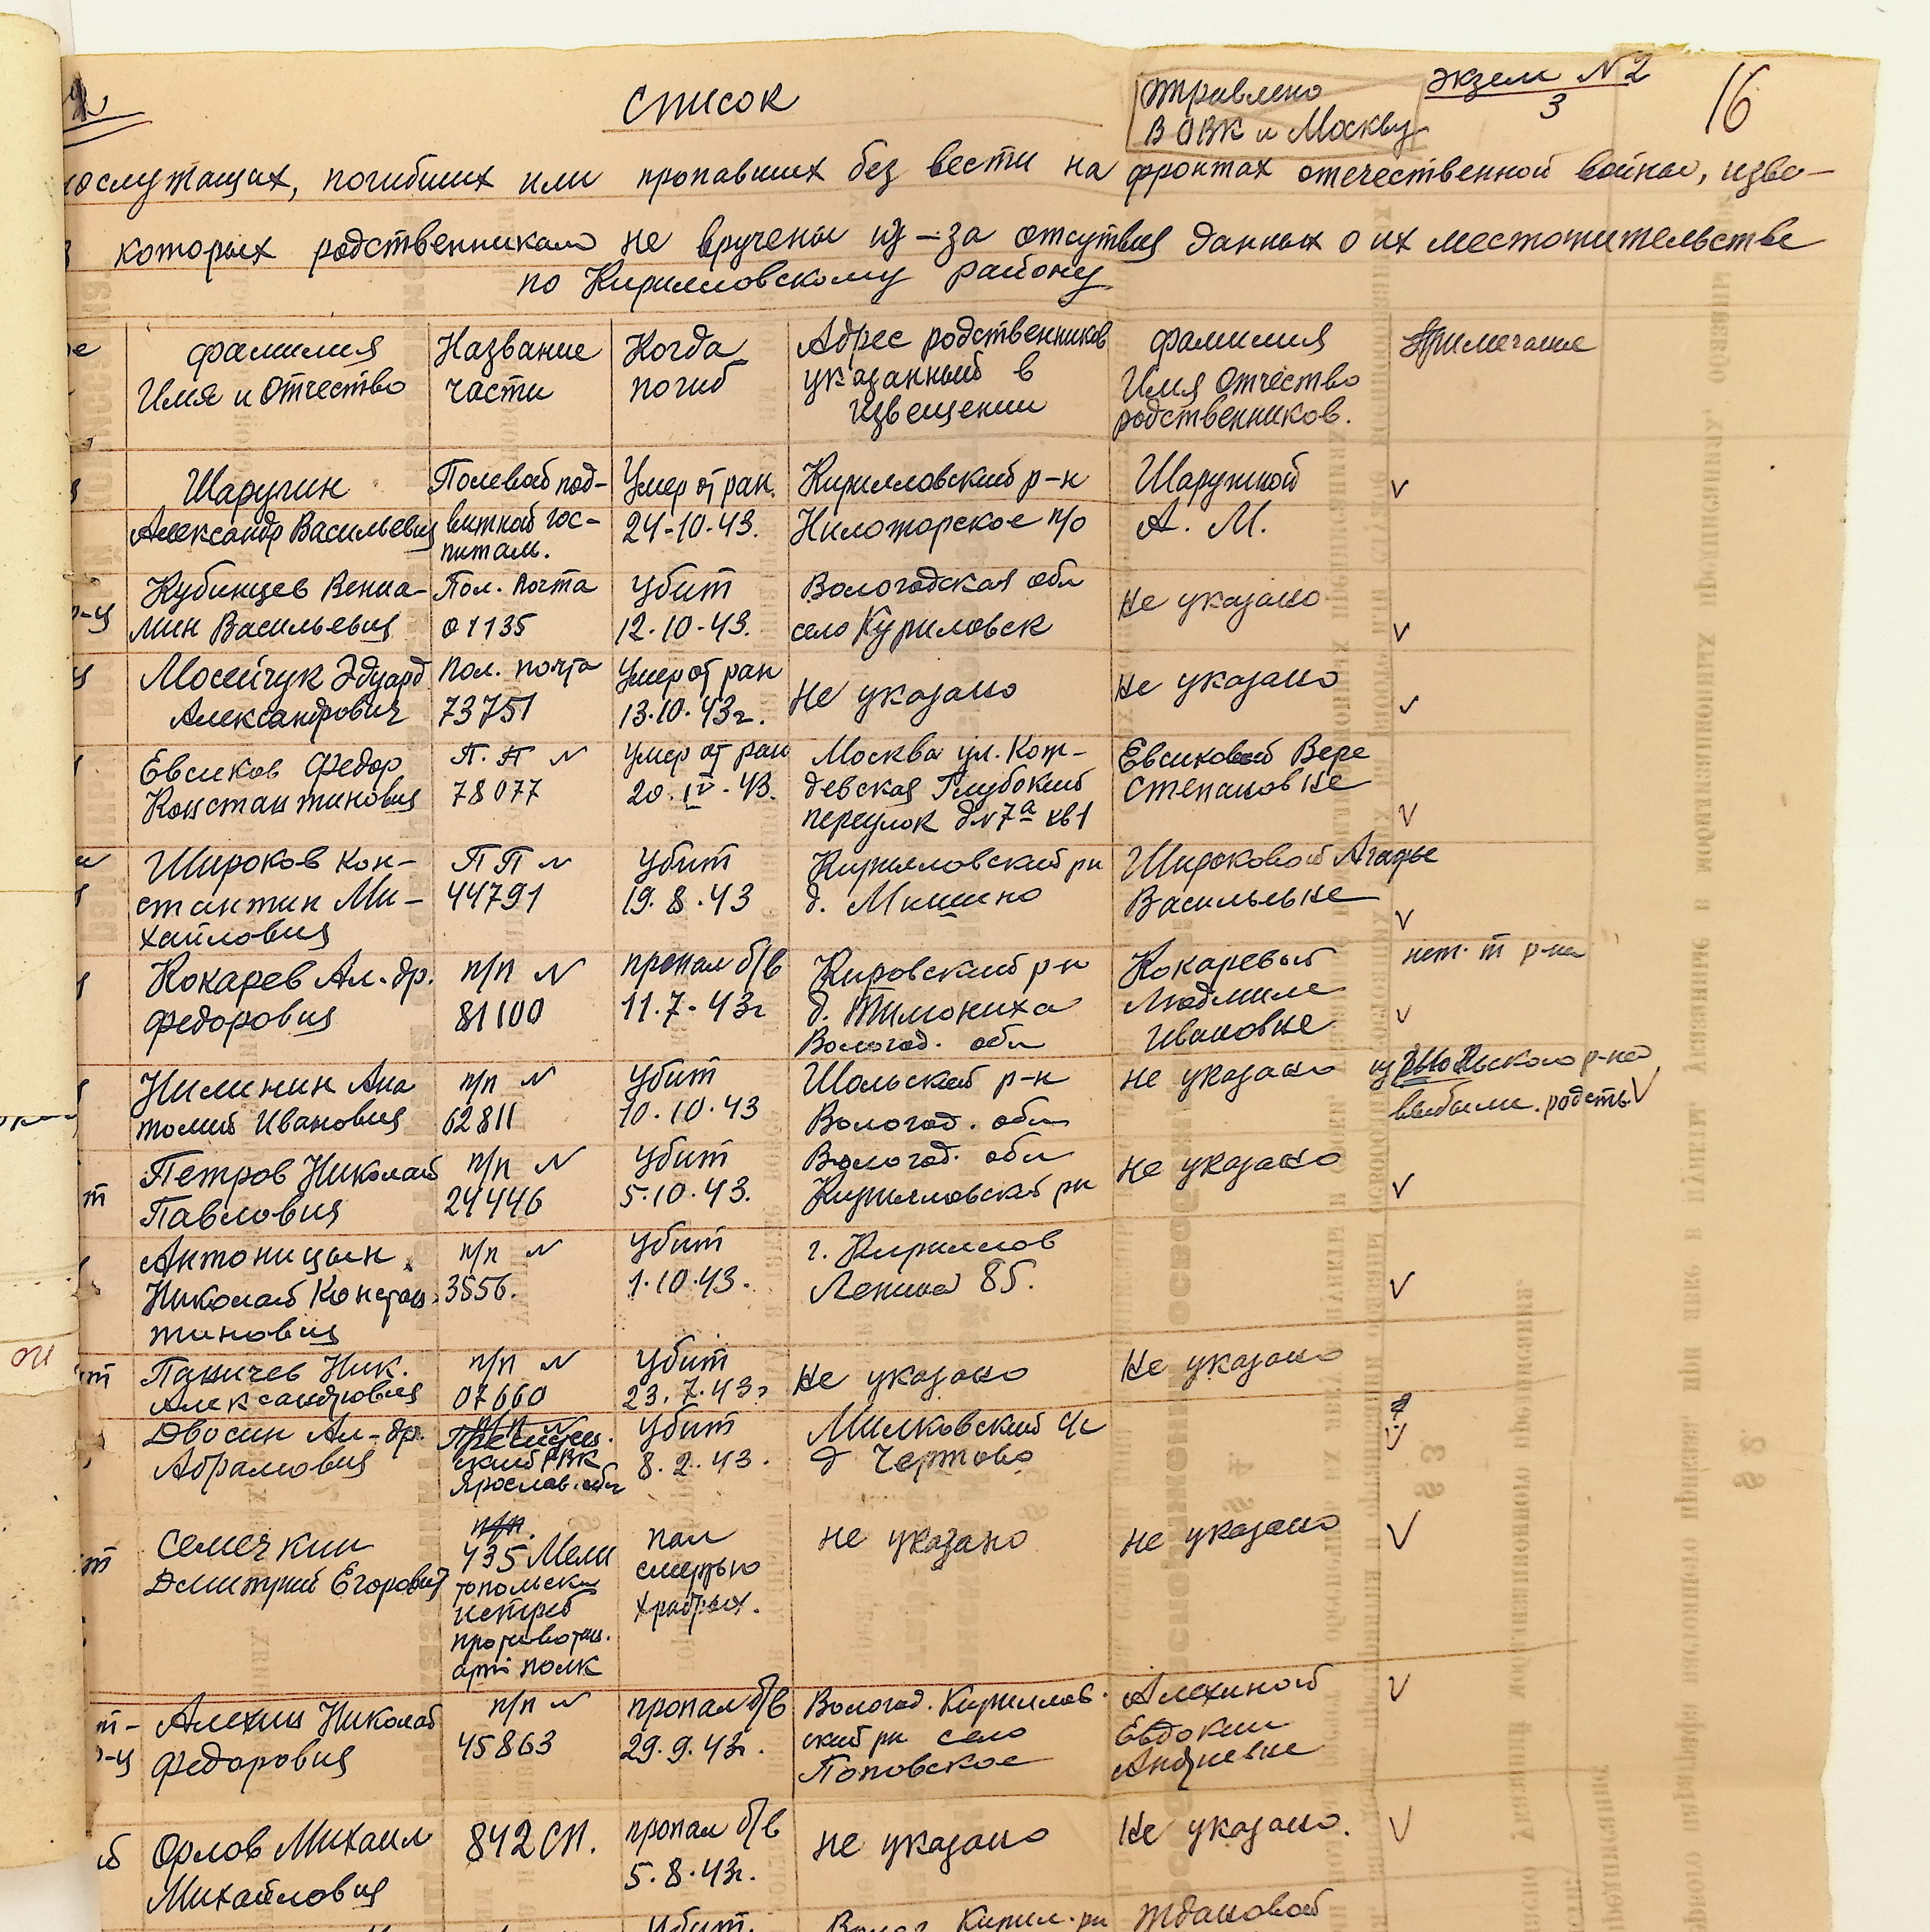 список
Отправлено
в ОВК и Москву
Экзем N 2
3
16
ослужащих, погибших или пропавших без вести на фронтах отечественной войны, изве-
которых родственникам не вручены из-за отсутвия данных о их местожительстве
по Кирилловскому району
фамилия
Имя и Отчество
Название
части
Когда
погиб
Адрес родственников
указанный в
извещении
фамилия
Имя Отчество
родственников.
Примечание
Шаругин
Александр Васильевич
Полевой под-
вижной гос-
питаль.
Умер от ран.
24-10-43.
Кирилловский р-н
п/о
А. М.
v
Кубинцев Вениа-
мин Васильевич
Пол. почта
01135
убит
12.10-43.
Вологодская обл
село Куриловск
Не указано
v
Мосейчук Эдуард
Александрович
Пол. почта
73751
Умер от ран
13.10.43г.
Не указано
Не указано
v
Евсиков Федор
Константинович
П. П N
78077
умер от ран
20. IV - 43.
Москва ул. Кож-
девская Глубокий
переулок д N 7а кв 1
Евсиковой Вере
Степановне
v
Широков Кон-
стантин Ми-
хайлович
П П N
44791
убит
19.8.43
Кирилловский рн
д. Мишино
Широковой Агафье
Васильевне
v
Кокарев Ал.др.
Федорович
п/п N
81100
пропал б/в
11.7-43г
Кировский р-н
д. Тимониха
Вологод. обл
Кокаревый
Людмиле
Ивановне
нет. т р-на
v
Нилинин Ана
толий Иванович
п/п N
62811
убит
10.10.43
Шольский р-н
Вологод. обл
не указано
из Шольского р-на
выбыли. родств
v
Петров Николай
Павлович
п/п N
24446
убит
5.10.43.
Вологод. обл
Кирилловский рн
не указано
v
Антоницын
Николай Констан-
тинович
п/п N
3556.
убит
1.10.43.
г. Кириллов
Ленина 85.
v
Паничев Ник.
Александрович
п/п N
07660
убит
23.7.43г
Не указано
Не указано
Двосин Ал-др.
Абрамович
п/п N
ский РВК
Ярослав. обл
убит
8.2.43.
Милковский с/с
д Чертово
?
v
Семечкин
Дмитрий Егорович
п/п.
435 Мели
топольски
истреб
противотан.
арт полк
пал
смертью
храбрых.
не указано
не указано
v
Алехин Николай
Федорович
п/п N
45863
пропал б/в
29.9.43г.
Вологод. Кириллов.
ский рн село
Поповское
Алехиной
Евдокии
Андреевне
v
Орлов Михаил
Михайлович
842 СП.
пропал б/в
5.8.43г.
не указано
Не указано.
v
убит.
Волог. Кирил. рн
Ждановой